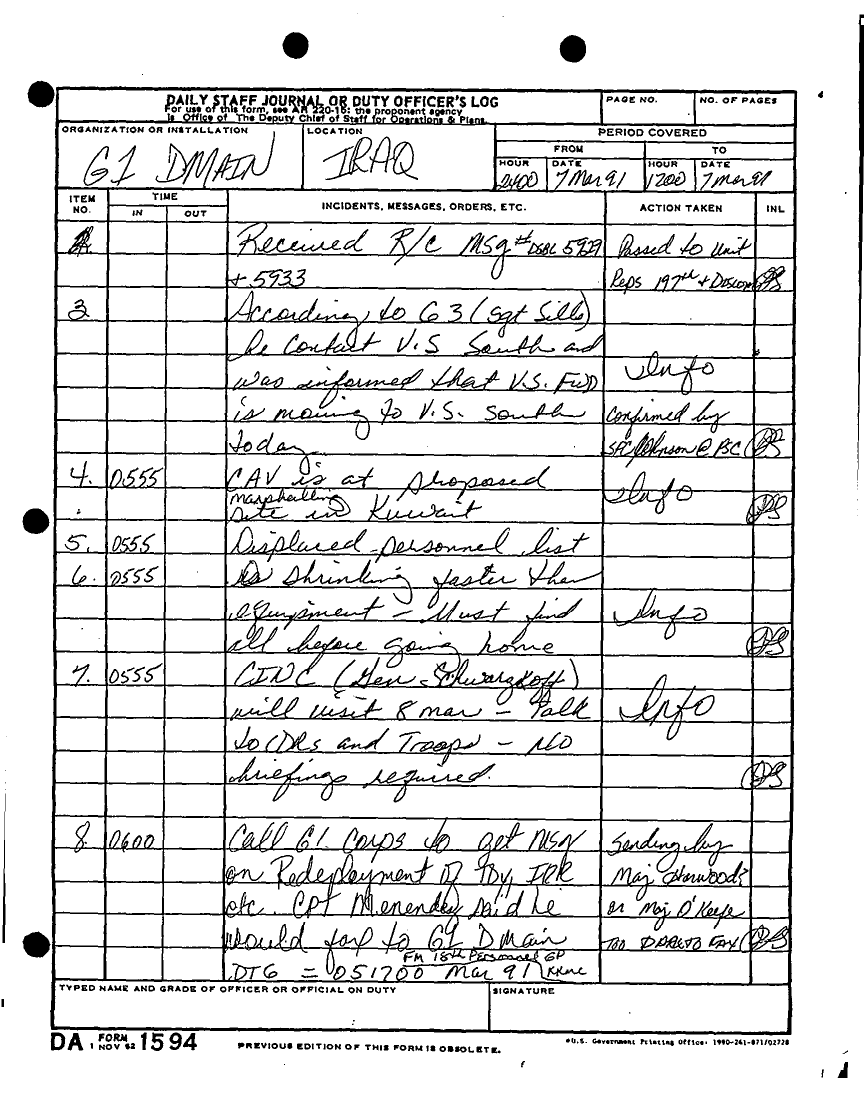 DAILY STAFF JOURNAL OR DUTY OFFICER'S LOG
For use of this form, see AR 220-15: the proponent agency
is Office of The Deputy Chief of Staff for Operations & Plans.
PAGE NO.
NO. OF PAGES
ORGANIZATION OR INSTALLATION
G1 DMAIN
LOCATION
IRAQ
PERIOD COVERED
FROM
TO
HOUR
DATE
HOUR
DATE
2400
7 Mar 91
1200
7 Mar 91
ITEM NO.
TIME
IN
OUT
INCIDENTS, MESSAGES, ORDERS, ETC.
ACTION TAKEN
INL
Received R/C Msg # DSBL 5929 Passed to Unit
+ 5933 Reps 197th + Discom
3. According to G3 (Sgt Sills)
he contact V.S South and
was informed that V.S. FWD Info
is moving to V.S. South confirmed by
today SFC Johnson @ PSC
4. 0555 CAV is at proposed Info
marshalling
site in Kuwait
5. 0555 Displaced personnel list
6. 0555 is shrinking faster than
equipment - Must find Info
all before going home
7. 0555 CINC (Gen Schwarzkoff)
will visit 8 mar - Talk Info
to CDRs and Troops - NO
briefings required.
8. 0600 Call G1 Corps to get msg Sending by
on Redeployment of TDY, IRR Maj
etc. CPT Menendez said he or Maj O'Keefe
would fax to G1 Dmain FAX
FM 18th Personnel GP
DTG = 051700 Mar 91
TYPED NAME AND GRADE OF OFFICER OR OFFICIAL ON DUTY
SIGNATURE
DA FORM 1 NOV 62 1594
PREVIOUS EDITION OF THIS FORM IS OBSOLETE.
U.S. Government Printing Office: 1990-261-871/02728